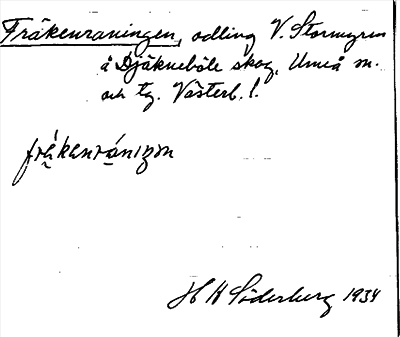 Fräkenraningen, odling V. Stormyren
å Djäkneböle skog, Umeå sn.
och tg. Västerb. l.
fräkenráningən
H H Söderberg 1934